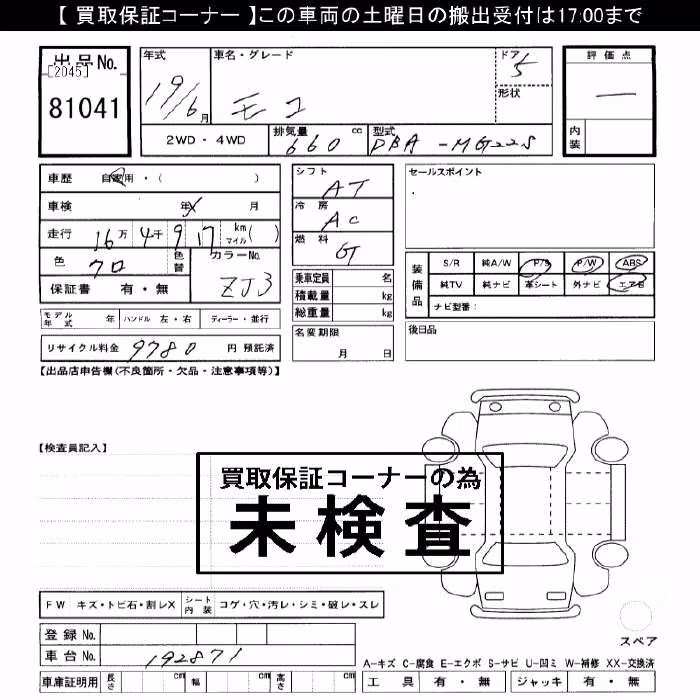 【 買取保証コーナー 】この車両の土曜日の搬出受付は17:00まで
出品No. [2045] 81041
年式 19/6月
車名・グレード モコ
ドア 5
形状
評価点 —
内装
2WD・4WD
排気量 660 cc
型式 DBA-MG22S
車歴 自家用・( )
車検 年 月
走行 16万4千917 km マイル( )
色 クロ 色替 カラーNo. ZJ3
保証書 有・無
シフト AT
冷房 AC
燃料 G
乗車定員 名
積載量 kg
総重量 kg
セールスポイント
装備品
S/R 純A/W P/S P/W ABS
純TV 純ナビ 革シート 外ナビ エアB
ナビ型番:
モデル年式 年 ハンドル 左・右 ディーラー・並行
名変期限 月 日
後日品
リサイクル料金 9780 円 預託済
【出品店申告欄(不良箇所・欠品・注意事項等)】
【検査員記入】
買取保証コーナーの為
未検査
FW キズ・トビ石・割レX シート内装 コゲ・穴・汚レ・シミ・破レ・スレ
登録 No.
車台 No. 192871
車庫証明用 長さ cm 幅 cm 高さ cm
スペア
A-キズ C-腐食 E-エクボ S-サビ U-凹ミ W-補修 XX-交換済
工具 有・無 ジャッキ 有・無